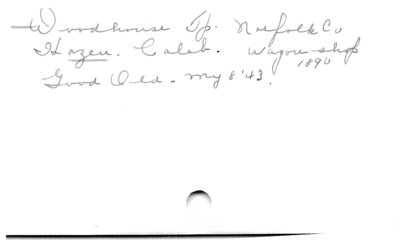 Woodhouse Tp. Norfolk Co
Hazen. Caleb. Wagon-shop
1890
Good Old - My 8 '43.